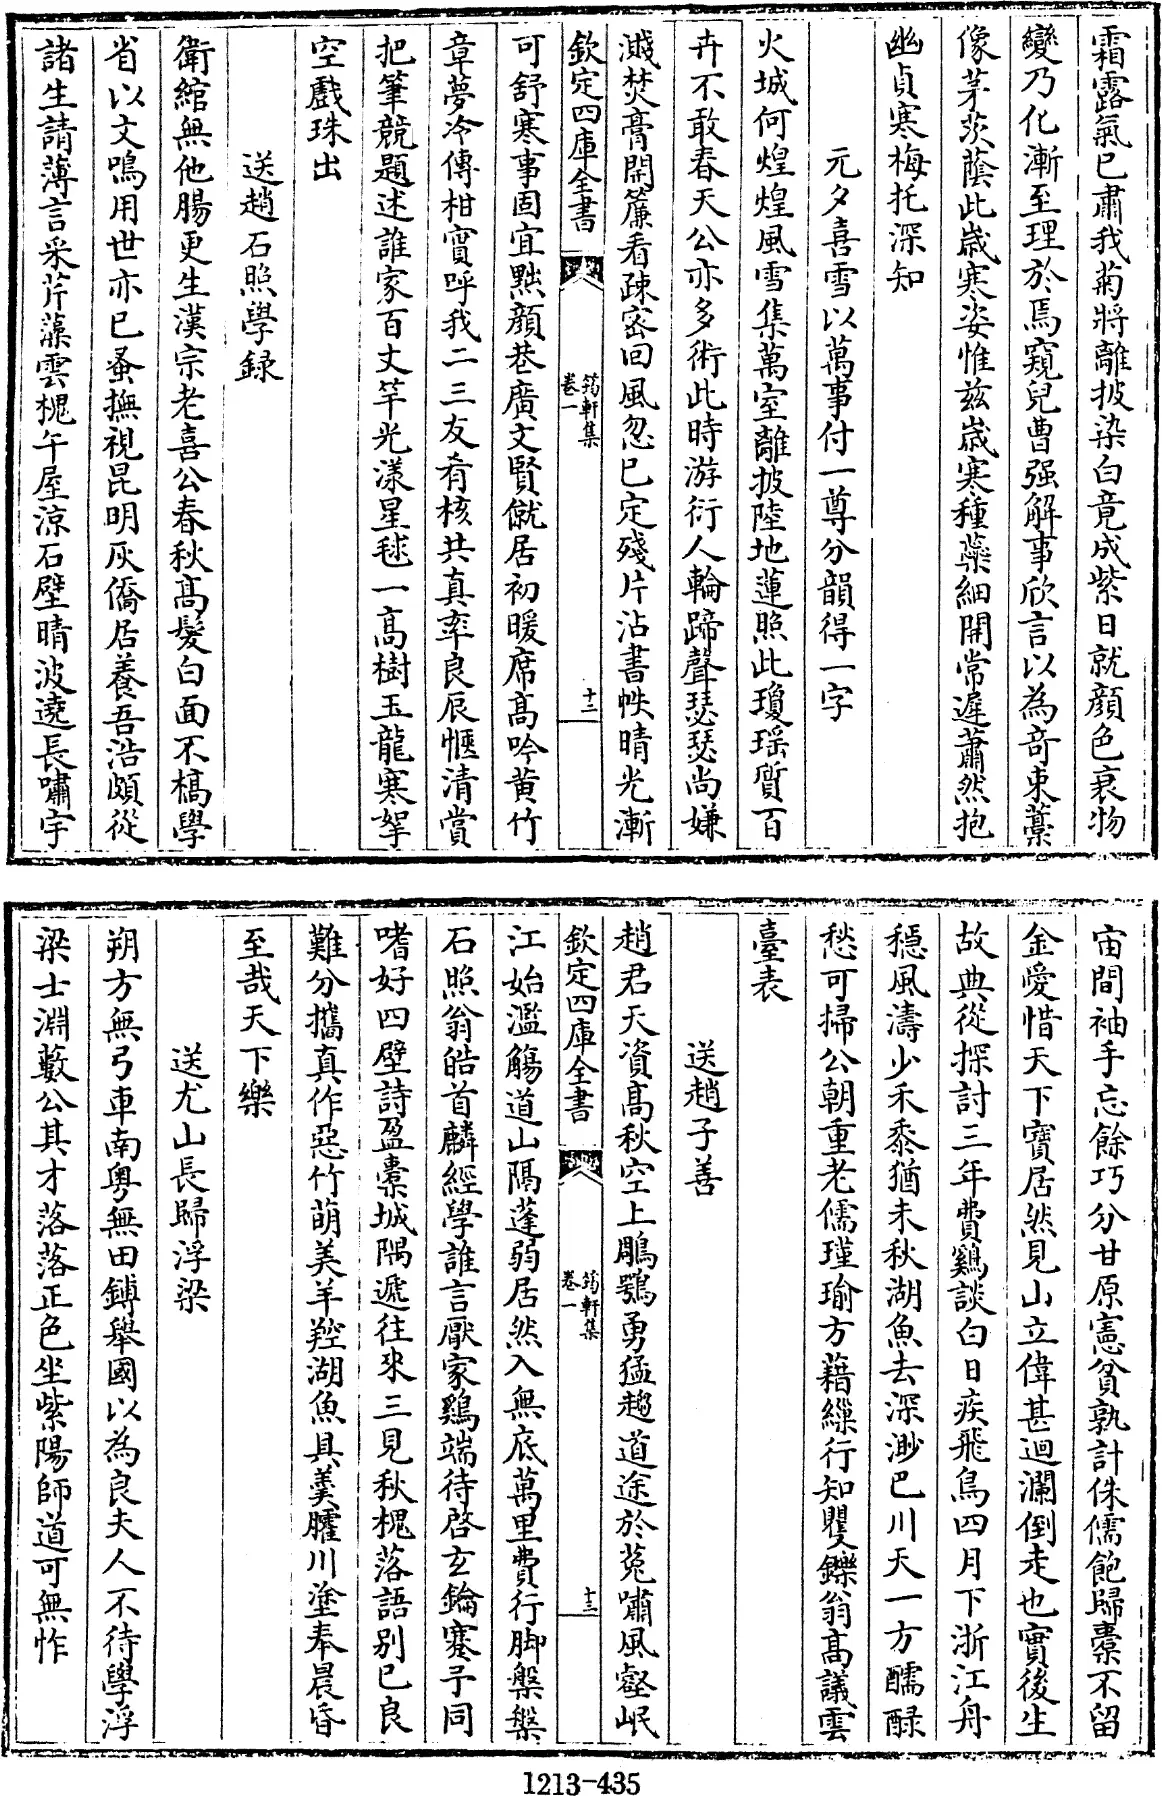 霜露氣已肅我菊將離披染白竟成紫日就顔色衰物
變乃化漸至理於焉窺兒曹强解事欣言以為竒束藁
像茅茨蔭此歳寒姿惟兹歳寒種蘂細開常遲蕭然抱
幽貞寒梅托深知
元夕喜雪以萬事付一尊分韻得一字
火城何煌煌風雪集萬室離披陸地蓮照此瓊瑤質百
卉不敢春天公亦多術此時游衍人輪蹄聲瑟瑟尚嫌
濺焚膏開簾看疎密回風忽已定殘片沾書帙晴光漸
欽定四庫全書
筠軒集
卷一
十二
可舒寒事固宜黙顔巷廣文賢僦居初暖席高吟黄竹
章夢冷傳柑實呼我二三友肴核共真率良辰愜清賞
把筆競題述誰家百丈竿光漾星毬一高樹玉龍寒挐
空戲珠出
送趙石照學録
衛綰無他腸更生漢宗老喜公春秋高髪白面不槁學
省以文鳴用世亦已蚤撫視昆明灰僑居養吾浩頗從
諸生請薄言采芹藻雲槐午屋涼石壁晴波遶長嘯宇
宙間袖手忘餘巧分甘原憲貧孰計侏儒飽歸橐不留
金愛惜天下寳居然見山立偉甚迴瀾倒走也實後生
故典從探討三年費鷄談白日疾飛鳥四月下浙江舟
穏風濤少禾黍猶未秋湖魚去深渺巴川天一方醹醁
愁可掃公朝重老儒瑾瑜方藉繅行知矍鑠翁高議雲
臺表
送趙子善
趙君天資高秋空上鵰鶚勇猛趨道途於菟嘯風壑岷
江始濫觴道山隔蓬弱居然入無底萬里費行脚槃槃
石照翁皓首麟經學誰言厭家鷄端待啓玄鑰蹇予同
嗜好四壁詩盈橐城隅遞往來三見秋槐落語别已良
難分攜真作惡竹萌美羊羫湖魚具羮臛川塗奉晨昏
至哉天下樂
欽定四庫全書
筠軒集
卷一
十三
送尤山長歸浮梁
朔方無弓車南粤無田鎛舉國以為良夫人不待學浮
梁士淵藪公其才落落正色坐紫陽師道可無怍
1213-435